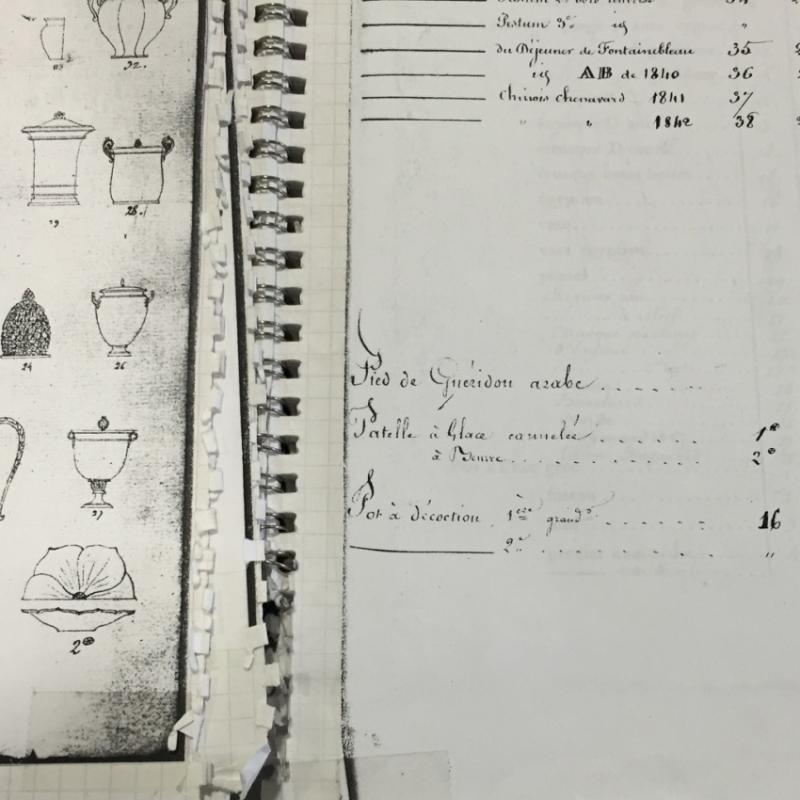 32.
29
28.
24
26
27
2⊕
Pestum 3e id "
du Déjeuner de Fontainebleau 35
id AB de 1840 36
Chinois Chenavard 1841 37
" " 1842 38
Pied de Guéridon arabe
Patelle à Glace cannelée 1⊕
à Beurre 2⊕
Pot à décoction 1ère grandr 16
2e "